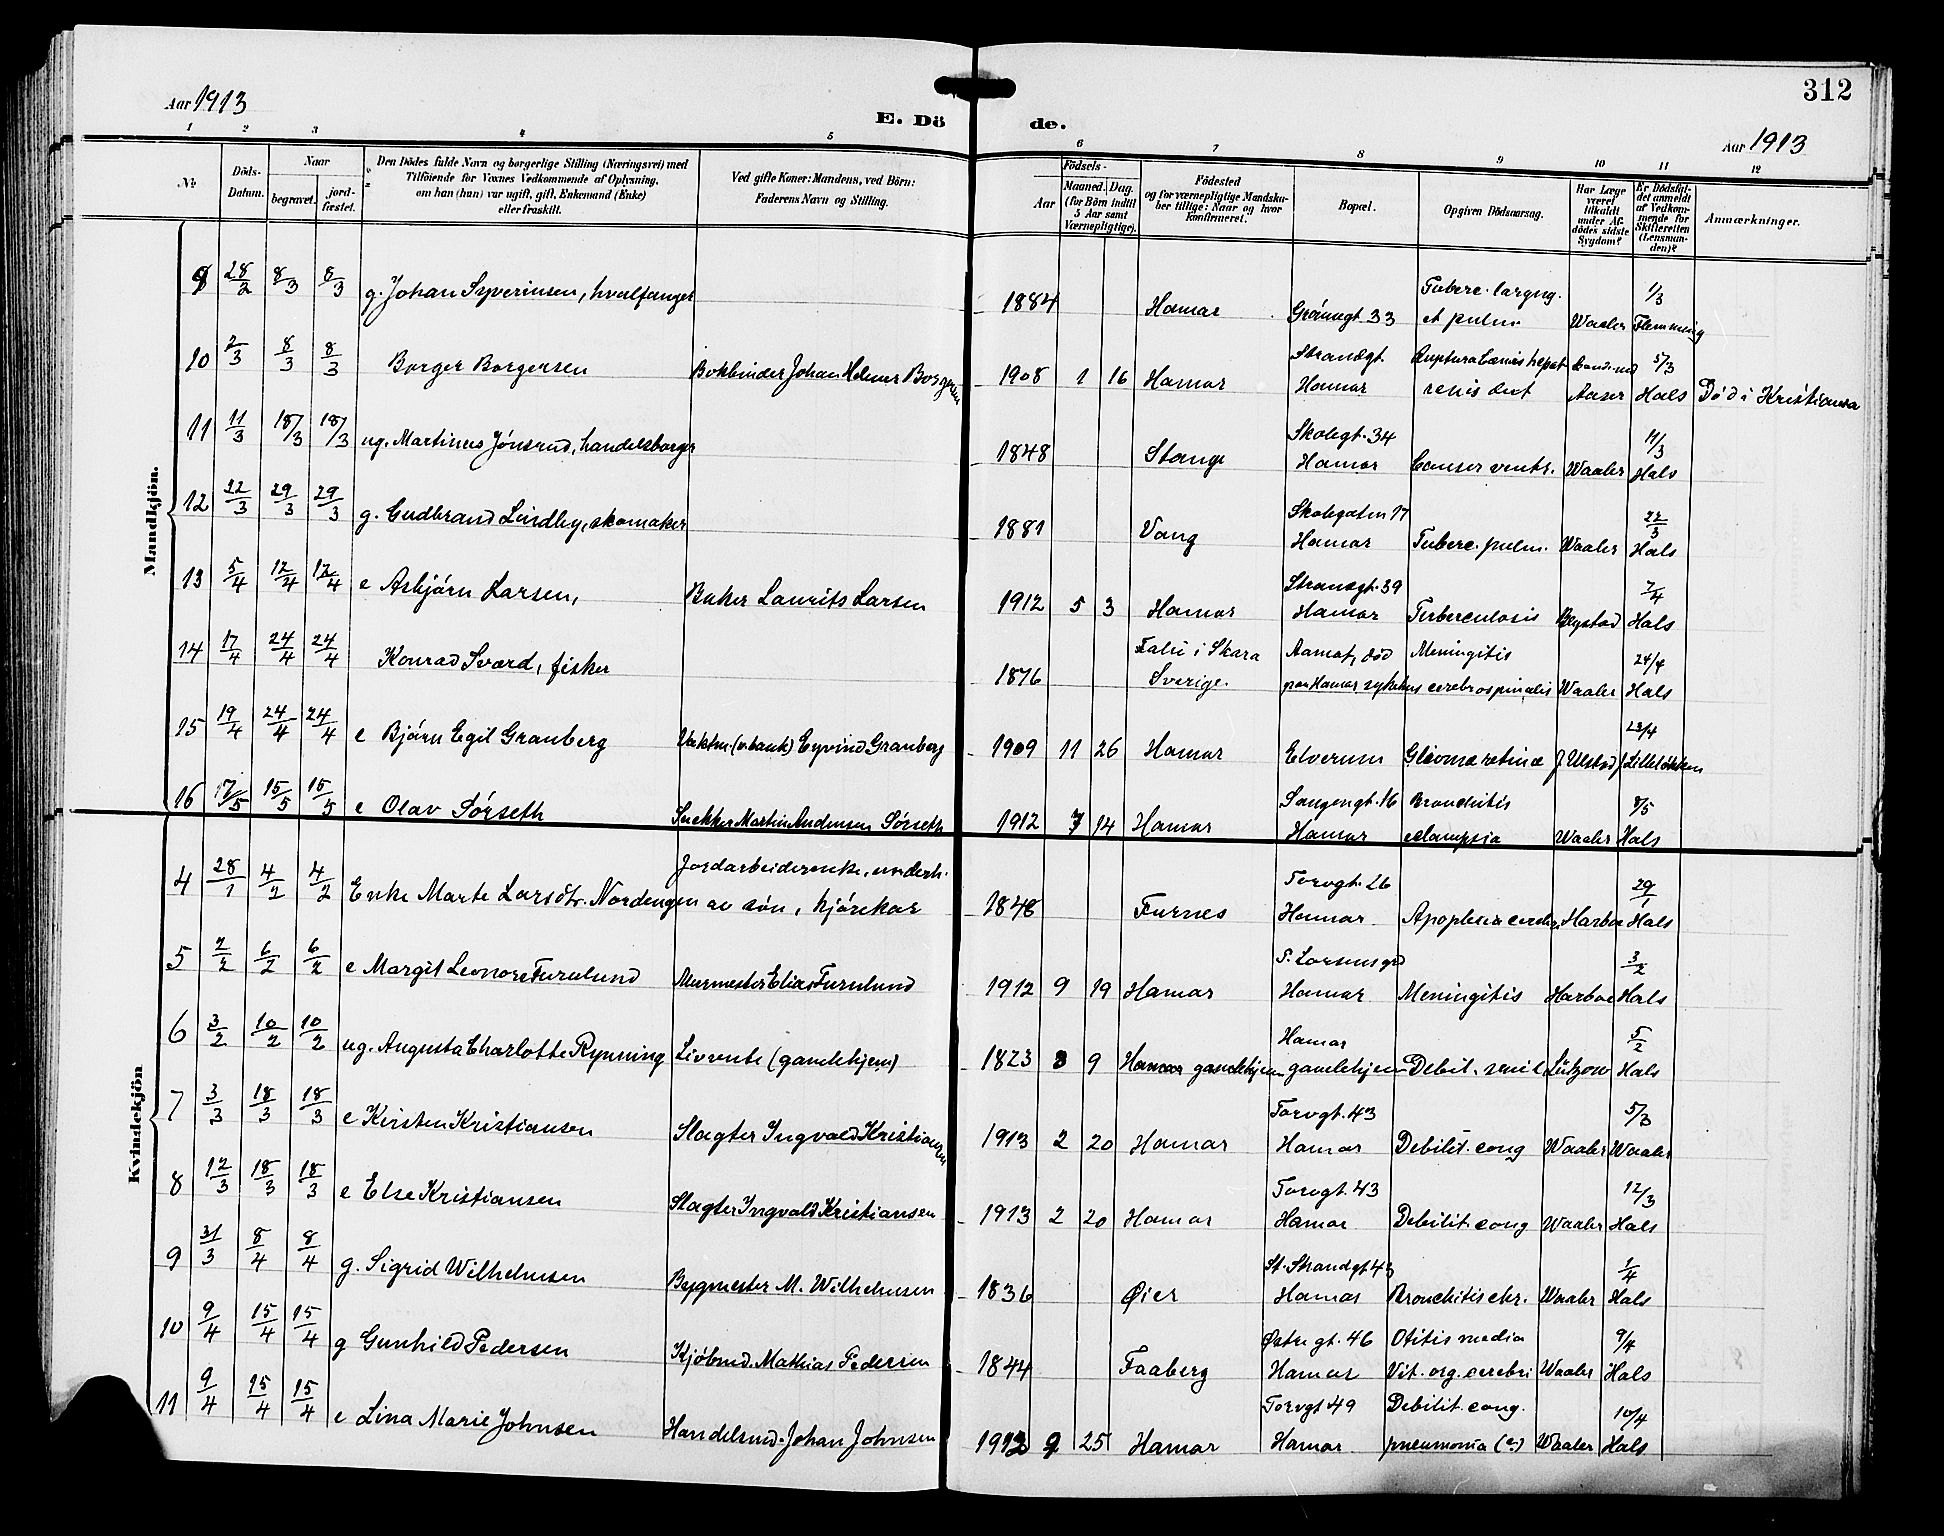 312
Aar 1913
E. Dö de.
Aar 1913
1 2 3 4 5 6 7 8 9 10 11 12
№
Döds-Datum.
Naar
begravet.
jordfæstet.
Den Dödes fulde Navn og borgerlige Stilling (Næringsvei) med
Tilföiende for Voxnes Vedkommende af Oplysning,
om han (hun) var ugift, gift, Enkemand (Enke)
eller fraskilt.
Ved gifte Koner: Mandens, ved Börn:
Faderens Navn og Stilling.
Födsels-
Aar
Maaned. Dag.
(for Börn indtil
5 Aar samt
Værnepligtige).
Födested
og for værnepligtige Mandska-
ber tillige: Naar og hvor
konfirmeret.
Bopæl.
Opgiven Dödsaarsag.
Har Læge
været
tilkaldt
under Af-
dödes sidste
Sygdom?
Er Dödsfal-
det anmeldt
af Vedkom-
mende for
Skifteretten
(Lensman-
den)?
Anmærkninger.
Mandkjön.
9 28/2 8/3 8/3 g. Johan Syverinsen, hvalfanger 1884 Hamar Grønnegt. 33 Tuberc. laryng. et pulm. Waaler 1/3 Flemming
10 2/3 8/3 8/3 Borger Borgersen Bokbinder Johan Helmer Borgersen 1908 1 16 Hamar Strandgt. Hamar Ruptura hepat. renis Aaser 5/3 Hals Død i Kristiania
11 11/3 18/3 18/3 ug. Martinus Jønsrud, handelsborger 1848 Stange Skolegt. 34 Hamar Cancer ventr. Waaler 11/3 Hals
12 22/3 29/3 29/3 g. Gudbrand Lindby, skomaker 1881 Vang Skolegaten 17 Hamar Tuberc. pulm. Waaler 22/3 Hals
13 5/4 12/4 12/4 e Asbjørn Larsen, Baker Laurits Larsen 1912 5 3 Hamar Strandgt. 39 Hamar Tuberculosis Bystad 7/4 Hals
14 17/4 24/4 24/4 Konrad Sværd, fisker 1876 Falu i Skara Sverige. Aamot, død paa Hamar sykehus Meningitis cerebrospinalis Waaler 24/4 Hals
15 19/4 24/4 24/4 e Bjørn Egil Granberg Eyvind Granberg 1909 11 26 Hamar Elverum Glioma retinæ J Ulstad 23/4 J Lilleløkken
16 12/5 15/5 15/5 e Olav Sørseth Snekker Martin Andersen Sørseth 1912 7 14 Hamar Sangengt. 16 Hamar Bronchitis eclampsia Waaler 8/5 Hals
Kvindekjön
4 28/1 4/2 4/2 Enke Marte Larsdtr. Nordengen Jordarbeiderenke, underh. av søn, kjørekar 1848 Furnes Torvgt. 26 Hamar Apoplexia cerebri Harboe 29/1 Hals
5 2/2 6/2 6/2 e Margit Leonore Furulund Murmester Elias Furulund 1912 9 19 Hamar P. Larsensgd Hamar Meningitis Harboe 3/2 Hals
6 3/2 10/2 10/2 ug. Augusta Charlotte Rynning Livrente (gamlehjem) 1823 3 9 Hamar gamlehjem Hamar gamlehjem Debil. senil Lützow 5/2 Hals
7 3/3 18/3 18/3 e Kirsten Kristiansen Slagter Ingvald Kristiansen 1913 2 20 Hamar Torvgt. 43 Hamar Debilit. cong Waaler 5/3 Waaler
8 12/3 18/3 18/3 e Else Kristiansen Slagter Ingvald Kristiansen 1913 2 20 Hamar Torvgt. 43 Hamar Debilit. cong Waaler 12/3 Hals
9 31/3 8/4 8/4 g. Sigrid Wilhelmsen Bygmester M. Wilhelmsen 1836 Øier St. Strandgt 43 Hamar Bronchitis chr. Waaler 1/4 Hals
10 9/4 15/4 15/4 g Gunhild Pedersen Kjøbmd. Mathias Pedersen 1844 Faaberg Østre gt. 46 Hamar Otitis media Vit. org. cerebri Waaler 9/4 Hals
11 9/4 15/4 15/4 e Lina Marie Johnsen Handelsmd. Johan Johnsen 1912 9 25 Hamar Torvgt 49 Hamar Debilit. cong. pneumonia (c) Waaler 10/4 Hals